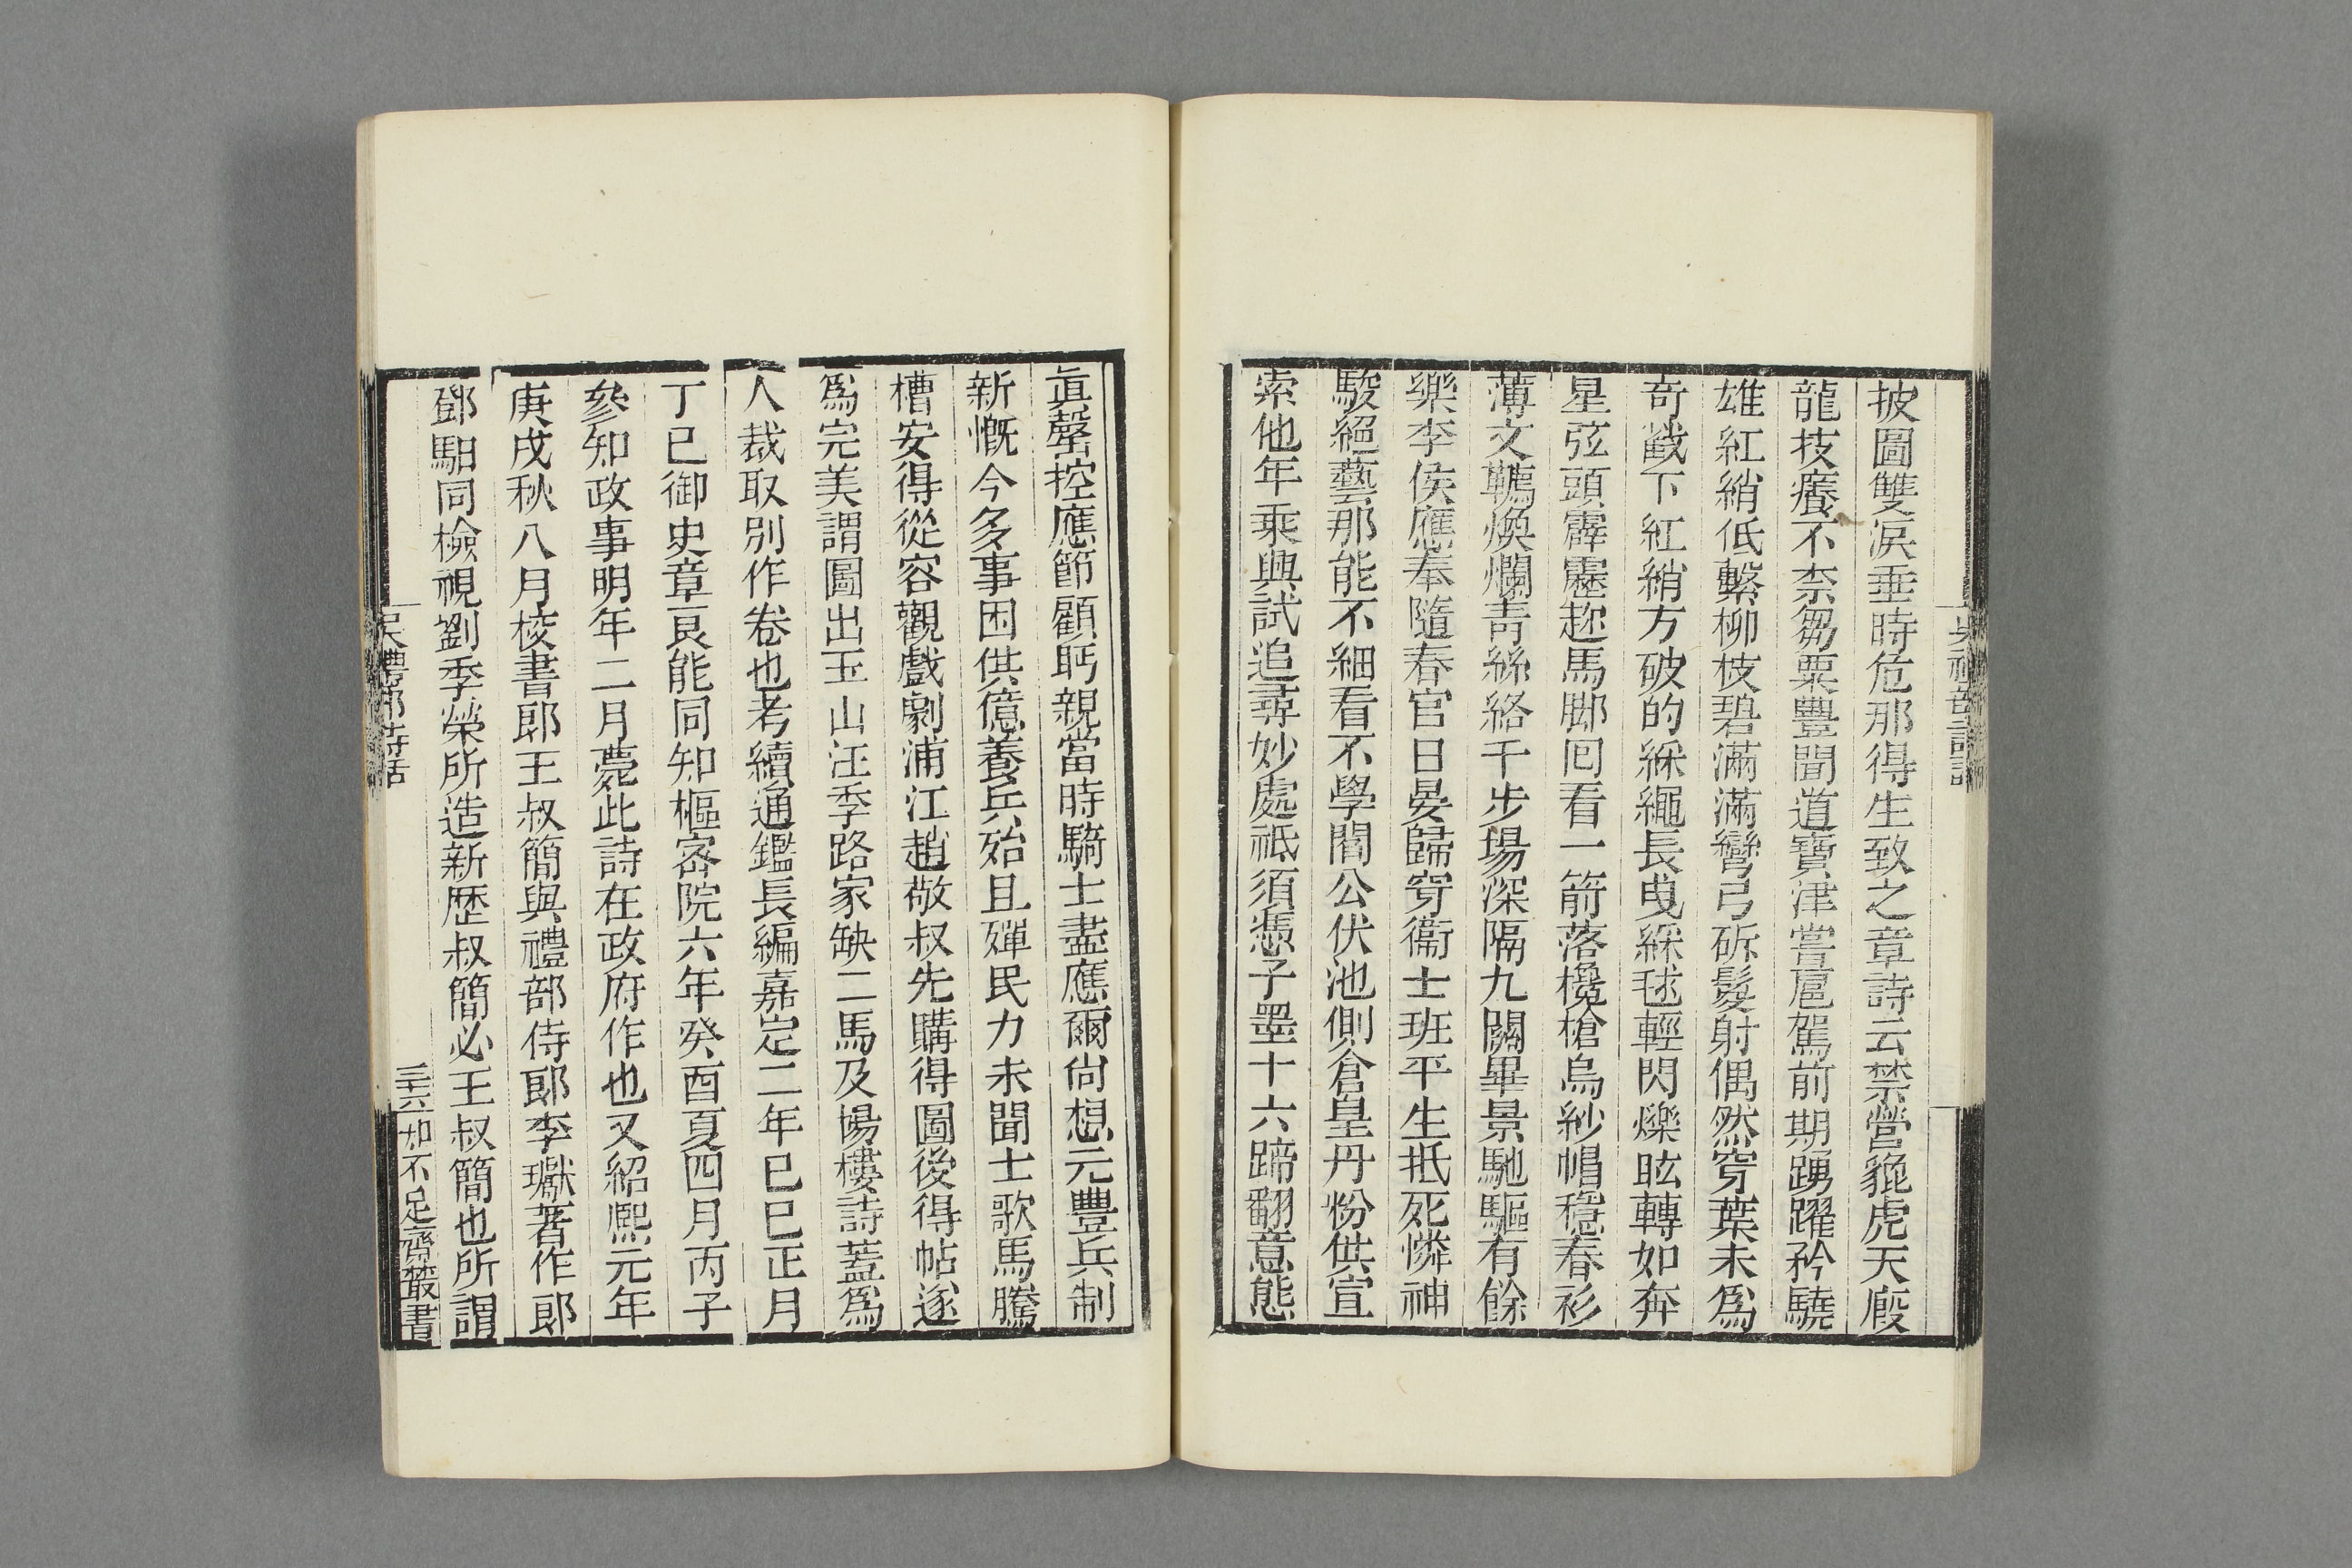 披圖雙淚垂時危那得生致之章詩云禁營貔虎天廄
龍技癢不柰芻粟豐聞道寶津嘗扈駕前期踴躍矜驍
雄紅綃低繫柳枝碧滿滿彎弓斫鬉射偶然穿葉未爲
奇截下紅綃方破的綵繩長曳綵毬輕閃爍眩轉如奔
星弦頭霹靂趂馬腳囘看一箭落欃槍烏紗帽穩春衫
薄文韉煥爛靑絲絡千步場深隔九關畢景馳驅有餘
樂李侯應奉隨春官日晏歸穿衞士班平生抵死憐神
駿絕藝那能不細看不學閻公伏池側倉皇丹粉供宣
索他年乘興試追尋妙處祗須憑子墨十六蹄翻意態
眞罄控應節顧眄親當時騎士盡應爾尙想元豐兵制
新慨今多事困供億養兵殆且殫民力未聞士歌馬騰
槽安得從容觀戲劇浦江趙敬叔先購得圖後得帖遂
爲完美謂圖出玉山汪季路家缺二馬及楊樓詩蓋爲
人裁取別作卷也考續通鑑長編嘉定二年巳巳正月
丁巳御史章良能同知樞密院六年癸酉夏四月丙子
參知政事明年二月薨此詩在政府作也又紹熙元年
庚戌秋八月校書郎王叔簡與禮部侍郎李巘著作郎
鄧馹同檢視劉季榮所造新歷叔簡必王叔簡也所謂
吳禮部詩話
三六 知不足齋叢書